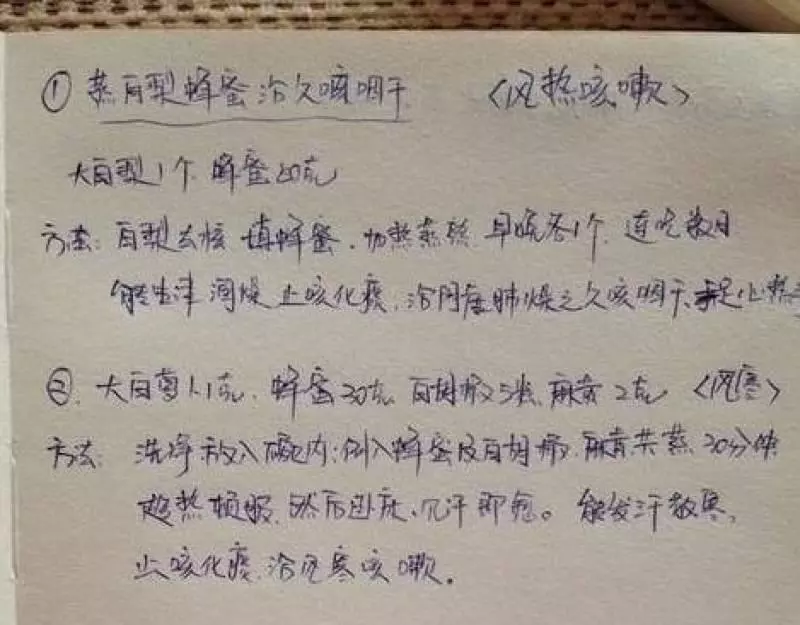 ① 蒸白梨蜂蜜治久咳咽干 〈风热咳嗽〉
大白梨1个 蜂蜜20克
方法: 白梨去核 填蜂蜜, 加热蒸熟 早晚各1个, 连吃数日
能生津润燥 止咳化痰, 治阴虚肺燥之久咳咽干、手足心热
② 大白萝卜1克, 蜂蜜30克 白胡椒5粒、麻黄2克 〈风寒〉
方法: 洗净放入碗内: 倒入蜂蜜及白胡椒、麻黄共蒸30分钟
趁热顿服, 然后卧床、见汗即愈。 能发汗散寒,
止咳化痰, 治风寒咳嗽。